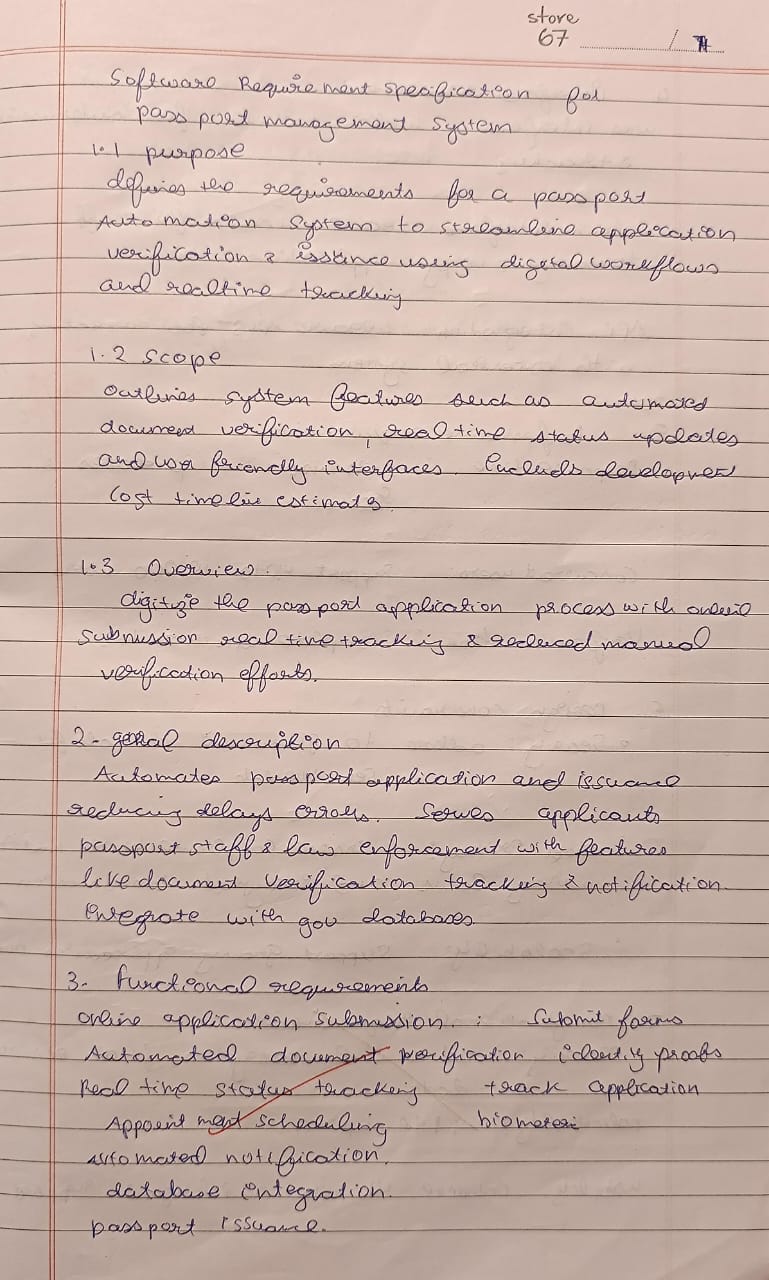 store
67 /
Software Requirement specification for
pass port management system
1.1 purpose
defines the requirements for a passport
Automation system to streamline application
verification & issuance using digital workflows
and realtime tracking
1.2 scope
outlines system features such as automated
document verification, real time status updates
and user friendly interfaces. Includs development
Cost timeline estimats
1.3 Overview.
digitize the passport application process with online
submission real time tracking & reduced manual
verification efforts.
2- genral description
Automates passport application and issuance
reducing delays errors. Serves applicants
passport staff & law enforcement with features
like document verification tracking & notification.
Integrate with gov databases.
3- functional requirements
online application submission. : Submit forms
Automated document verification identity proofs
Real time status tracking track application
Appointment scheduling biometric
automated notification.
database integration.
passport issuance.